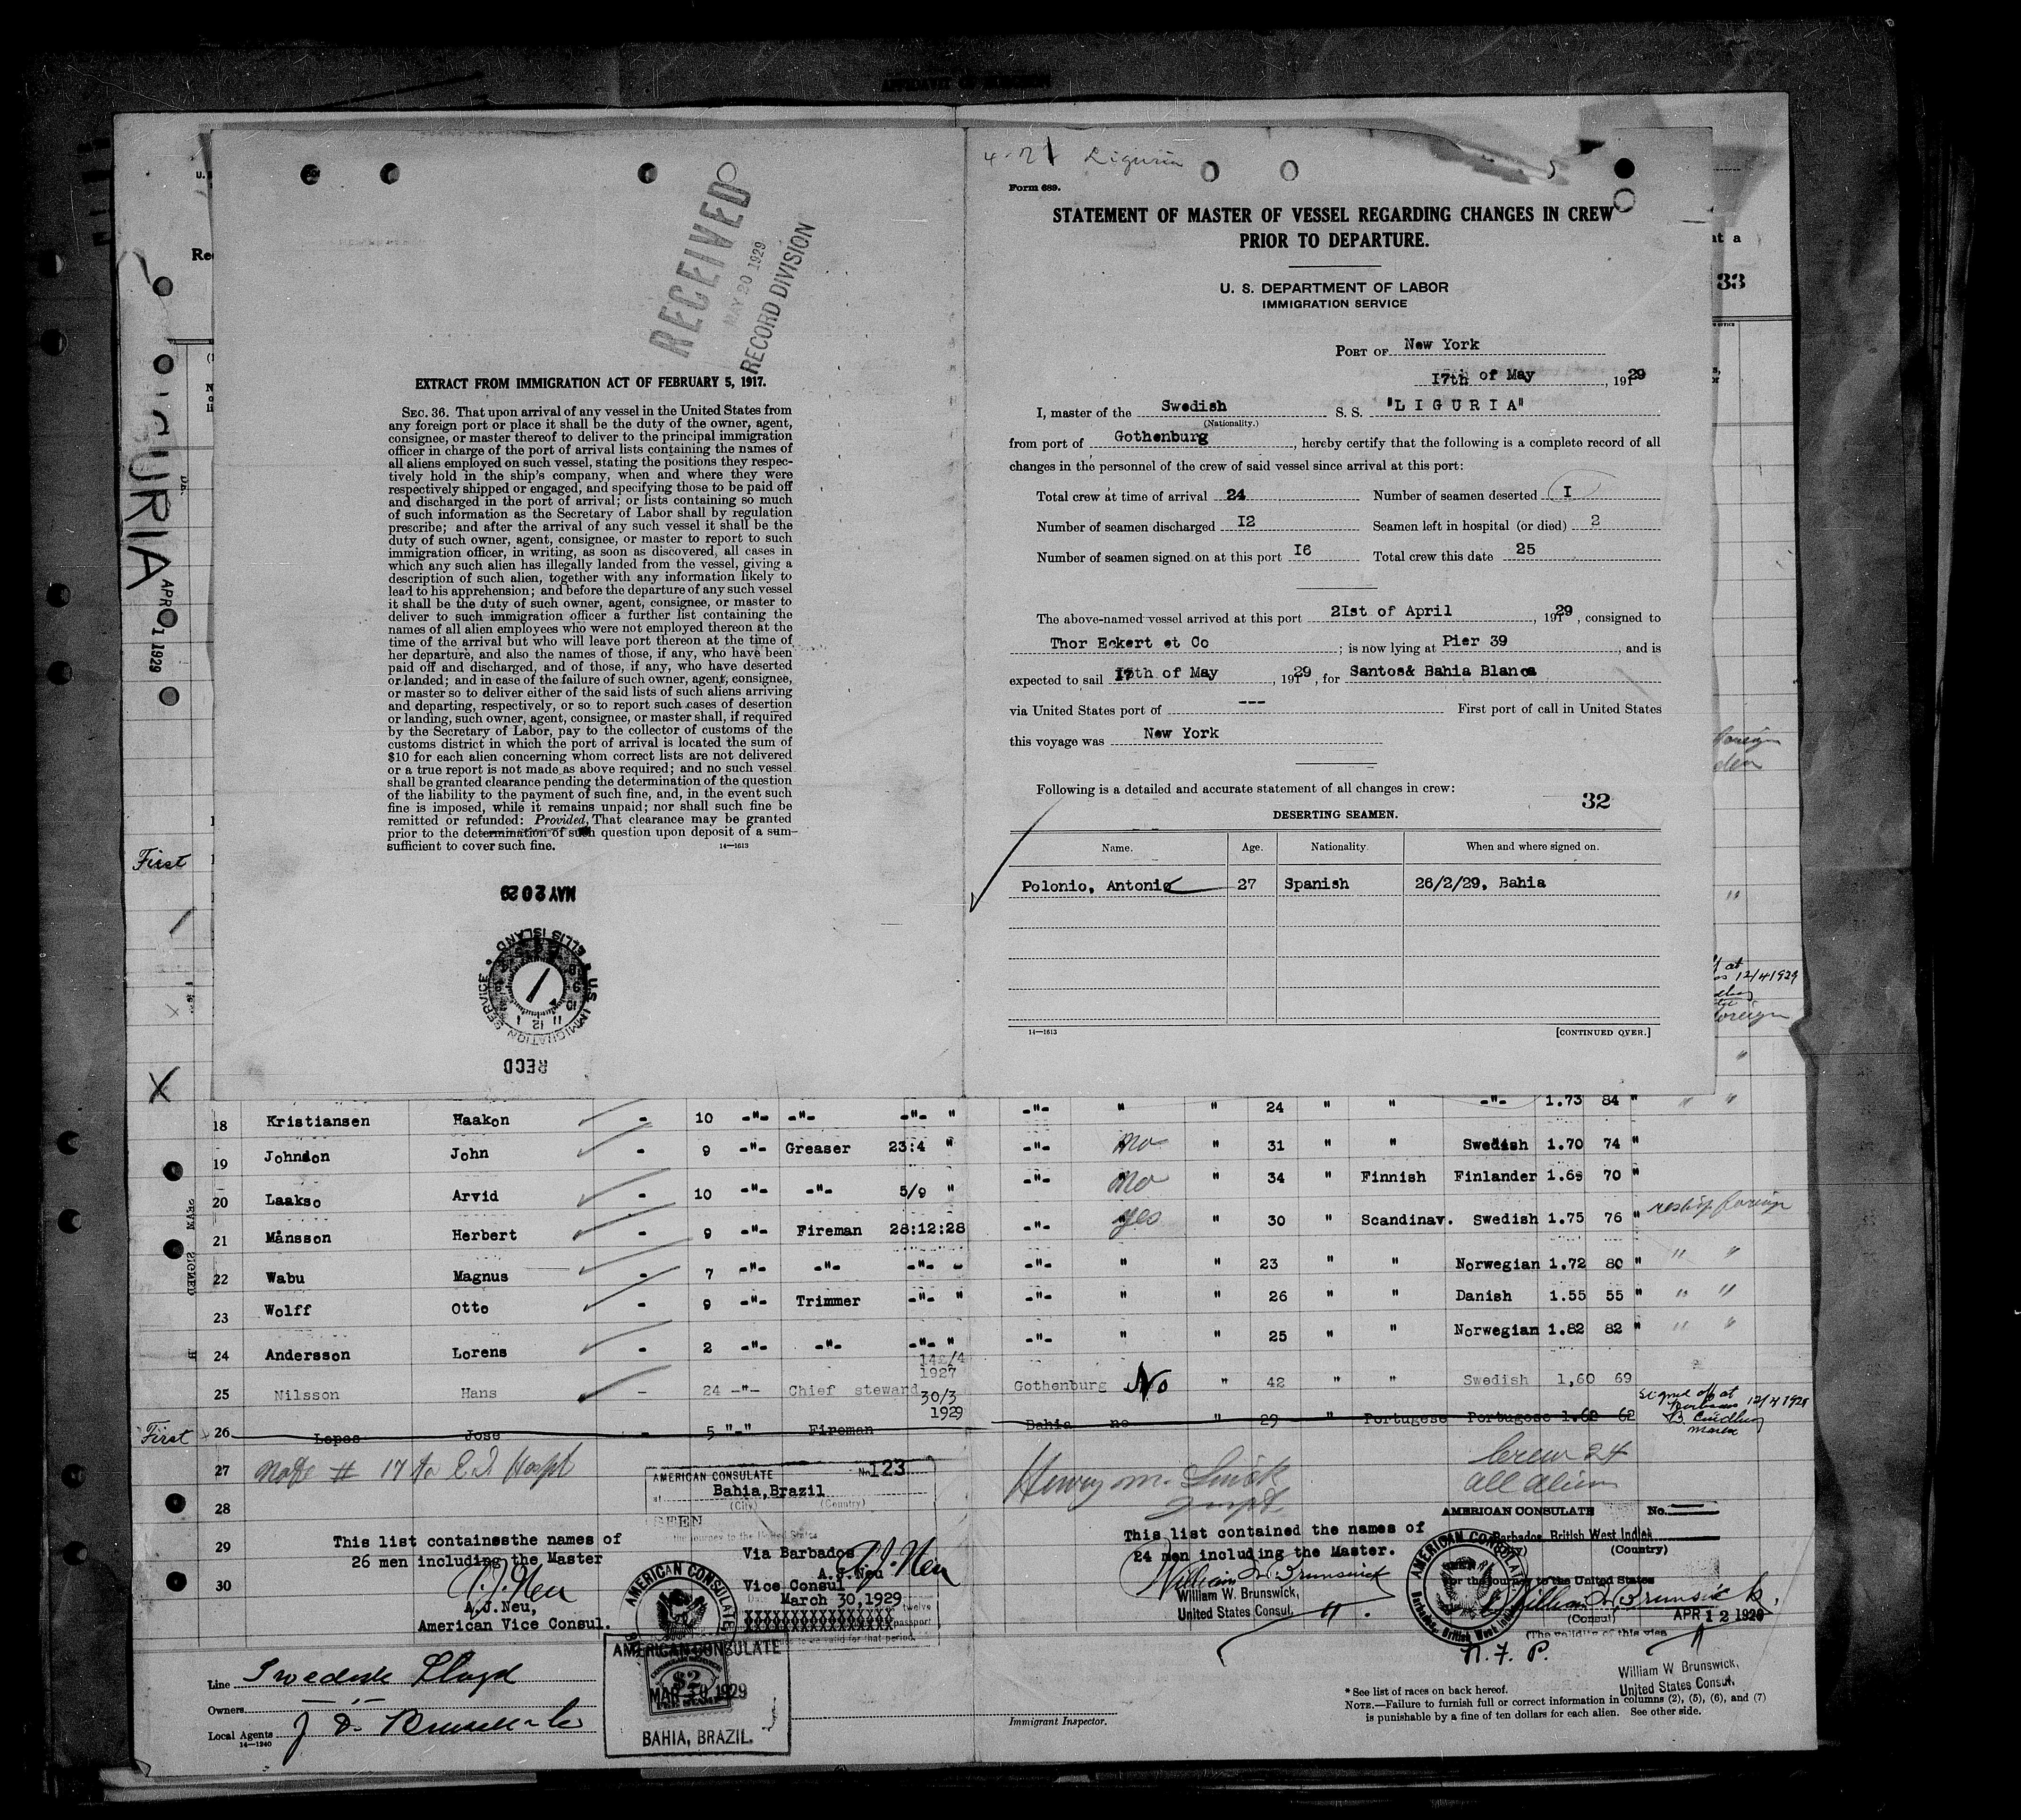 4-21 Liguria
Form 689.
STATEMENT OF MASTER OF VESSEL REGARDING CHANGES IN CREW
PRIOR TO DEPARTURE.
U. S. DEPARTMENT OF LABOR
IMMIGRATION SERVICE
PORT OF New York
17th of May, 1929
I, master of the Swedish S. S. "LIGURIA"
(Nationality.)
from port of Gothenburg, hereby certify that the following is a complete record of all
changes in the personnel of the crew of said vessel since arrival at this port:
Total crew at time of arrival 24 Number of seamen deserted I
Number of seamen discharged I2 Seamen left in hospital (or died) 2
Number of seamen signed on at this port I6 Total crew this date 25
The above-named vessel arrived at this port 2Ist of April, 1929, consigned to
Thor Eckert et Co; is now lying at Pier 39, and is
expected to sail 17th of May, 1929, for Santos& Bahia Blanca
via United States port of --- First port of call in United States
this voyage was New York
Following is a detailed and accurate statement of all changes in crew:
32
DESERTING SEAMEN.
Name. Age. Nationality. When and where signed on.
Polonio, Antonio 27 Spanish 26/2/29, Bahia
14—1613 [CONTINUED OVER.]
RECEIVED
MAY 20 1929
RECORD DIVISION
EXTRACT FROM IMMIGRATION ACT OF FEBRUARY 5, 1917.
SEC. 36. That upon arrival of any vessel in the United States from
any foreign port or place it shall be the duty of the owner, agent,
consignee, or master thereof to deliver to the principal immigration
officer in charge of the port of arrival lists containing the names of
all aliens employed on such vessel, stating the positions they respec-
tively hold in the ship's company, when and where they were
respectively shipped or engaged, and specifying those to be paid off
and discharged in the port of arrival; or lists containing so much
of such information as the Secretary of Labor shall by regulation
prescribe; and after the arrival of any such vessel it shall be the
duty of such owner, agent, consignee, or master to report to such
immigration officer, in writing, as soon as discovered, all cases in
which any such alien has illegally landed from the vessel, giving a
description of such alien, together with any information likely to
lead to his apprehension; and before the departure of any such vessel
it shall be the duty of such owner, agent, consignee, or master to
deliver to such immigration officer a further list containing the
names of all alien employees who were not employed thereon at the
time of the arrival but who will leave port thereon at the time of
her departure, and also the names of those, if any, who have been
paid off and discharged, and of those, if any, who have deserted
or landed; and in case of the failure of such owner, agent, consignee,
or master so to deliver either of the said lists of such aliens arriving
and departing, respectively, or so to report such cases of desertion
or landing, such owner, agent, consignee, or master shall, if required
by the Secretary of Labor, pay to the collector of customs of the
customs district in which the port of arrival is located the sum of
$10 for each alien concerning whom correct lists are not delivered
or a true report is not made as above required; and no such vessel
shall be granted clearance pending the determination of the question
of the liability to the payment of such fine, and, in the event such
fine is imposed, while it remains unpaid; nor shall such fine be
remitted or refunded: Provided, That clearance may be granted
prior to the determination of such question upon deposit of a sum
sufficient to cover such fine.
14—1613
MAY 20 29
U.S. IMMIGRATION SERVICE
ELLIS ISLAND
RECD
33
First
18 Kristiansen Haakon - 10 -"- -"- -"- " -"- " " 24 " " -"- 1.73 84 " " "
19 Johndon John - 9 -"- Greaser 23:4 " -"- No " 31 " " Swedish 1.70 74 "
20 Laakso Arvid - 10 -"- -"- 5/9 " -"- No " 34 " Finnish Finlander 1.68 70 "
21 Månsson Herbert - 9 -"- Fireman 28:12:28 -"- yes " 30 " Scandinav. Swedish 1.75 76 " reship foreign
22 Wabu Magnus - 7 -"- -"- -"- -"- " " 23 " " Norwegian 1.72 80 " " "
23 Wolff Otto - 9 -"- Trimmer -"- " -"- " " 26 " " Danish 1.55 55 " " "
24 Andersson Lorens - 2 -"- -"- -"- " -"- " " 25 " " Norwegian 1.82 82 " " "
25 Nilsson Hans - 24 -"- Chief steward 14/4 1927 Gothenburg No " 42 " " Swedish 1,60 69
First 26 Lopes Jose - 5 "-" Fireman 30/3 1929 Bahia no " 29 " Portugese Portugese 1.62 62 Signed off at Barbados 12/4 1929 B. Lindberg Master
27 Note # 17 to E I Hospt
28
29
30
Crew 24
All Alien
AMERICAN CONSULATE No. 123
at Bahia, Brazil
(City) (Country)
SEEN
the journey to the United States
Via Barbados
A.J.Neu
Vice Consul
March 30,1929
This list containesthe names of
26 men including the Master
A.J.Neu,
American Vice Consul.
AMERICAN CONSULATE
$2
MAR 30 1929
BAHIA, BRAZIL.
This list contained the names of
24 men including the Master.
William W. Brunswick,
United States Consul.
AMERICAN CONSULATE No.
Barbados, British West Indies
(Country)
For the journey to the United States
(Consul)
APR 12 1929
The validity of this visa
N. F. P.
William W Brunswick,
United States Consul.
Line Swedish Lloyd
Owners
Local Agents
14—1240
Immigrant Inspector.
* See list of races on back hereof.
NOTE.—Failure to furnish full or correct information in columns (2), (5), (6), and (7)
is punishable by a fine of ten dollars for each alien. See other side.